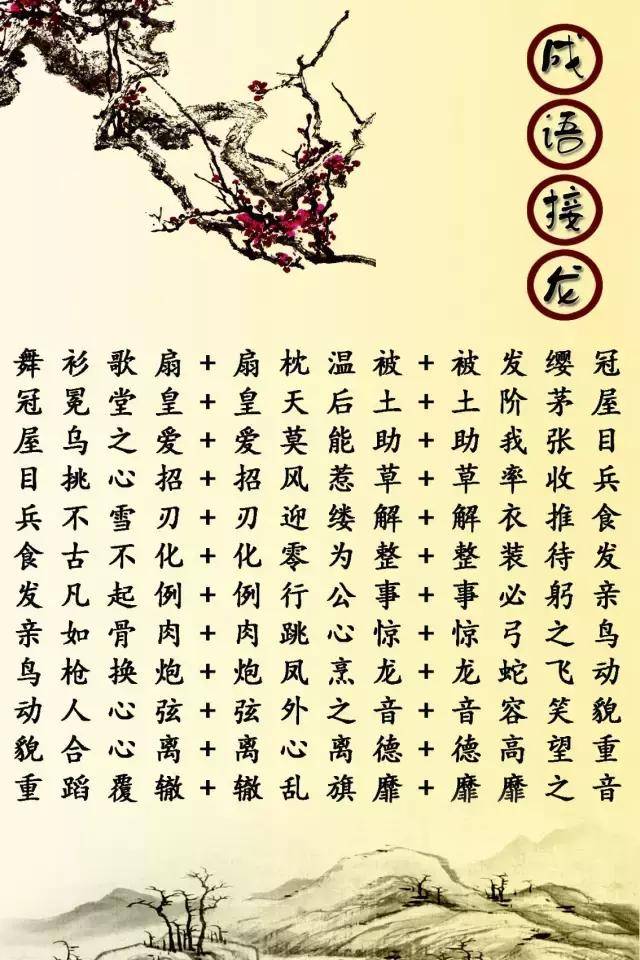 成语接龙
舞衫歌扇+扇枕温被+被发缨冠
冠冕堂皇+皇天后土+土阶茅屋
屋乌之爱+爱莫能助+助我张目
目挑心招+招风惹草+草率收兵
兵不雪刃+刃迎缕解+解衣推食
食古不化+化零为整+整装待发
发凡起例+例行公事+事必躬亲
亲如骨肉+肉跳心惊+惊弓之鸟
鸟枪换炮+炮凤烹龙+龙蛇飞动
动人心弦+弦外之音+音容笑貌
貌合心离+离心离德+德高望重
重蹈覆辙+辙乱旗靡+靡靡之音